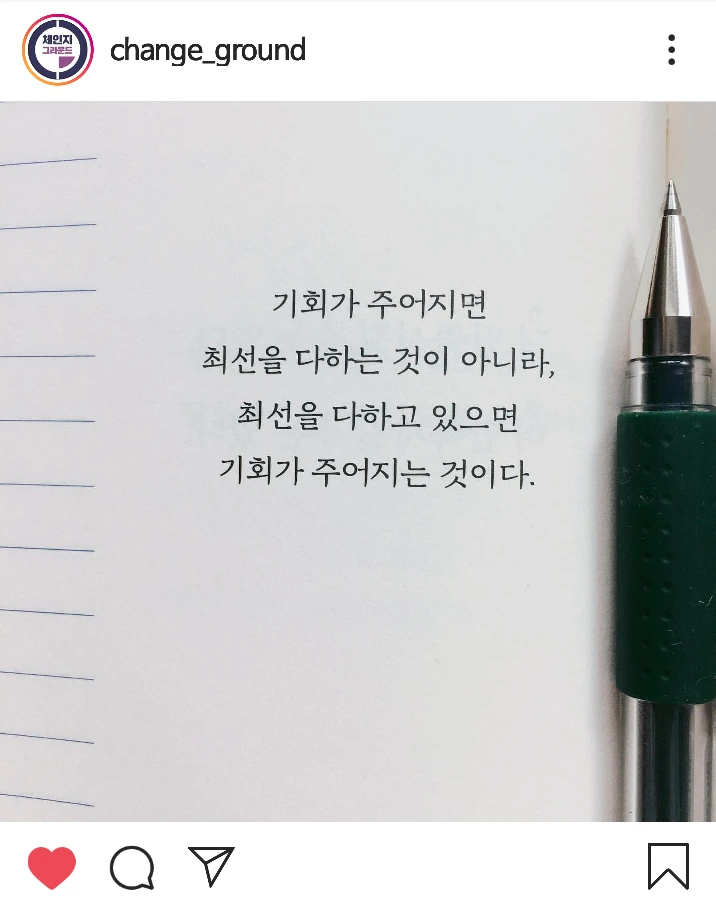 체인지
그라운드
change_ground
기회가 주어지면
최선을 다하는 것이 아니라,
최선을 다하고 있으면
기회가 주어지는 것이다.